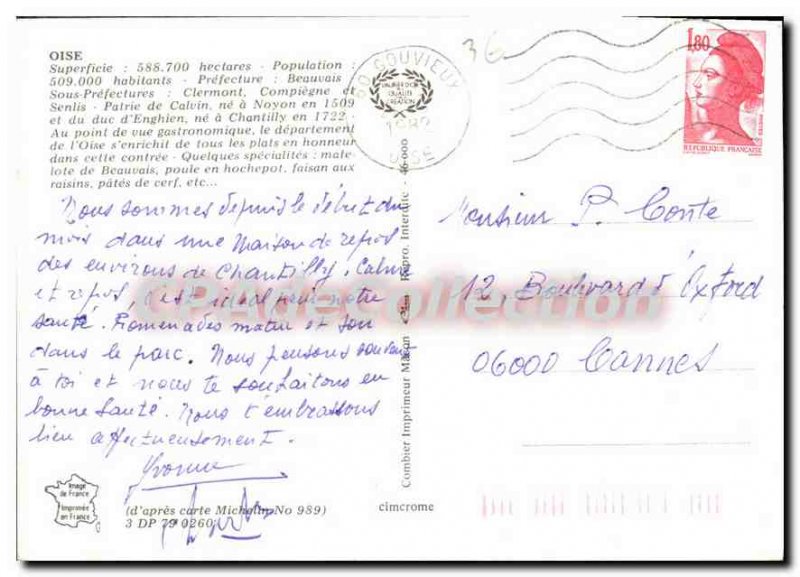 OISE
Superficie : 588.700 hectares - Population :
509.000 habitants - Préfecture : Beauvais
Sous-Préfectures : Clermont, Compiègne et
Senlis - Patrie de Calvin, né à Noyon en 1509
et du duc d'Enghien, né à Chantilly en 1722 -
Au point de vue gastronomique, le département
de l'Oise s'enrichit de tous les plats en honneur
dans cette contrée - Quelques spécialités : mate-
lote de Beauvais, poule en hochepot, faisan aux
raisins, pâtés de cerf, etc...
Nous sommes depuis le début du
mois dans une maison de repos
des environs de Chantilly. Calme
et repos, c'est idéal pour notre
santé. Promenades matin et soir
dans le parc. Nous pensons souvent
à toi et nous te souhaitons en
bonne santé. Nous t'embrassons
bien affectueusement.
Yvonne
Image
de France
Imprimée
en France
(d'après carte Michelin No 989)
3 DP 79 0260
cimcrome
Combier Imprimeur Mâcon
Repro. Interdite - 46.000
60 GOUVIEUX
1982
OISE
36
1,80
REPUBLIQUE FRANÇAISE
Monsieur P. Conte
12 Boulevard d'Oxford
06000 Cannes
CPAdeCollection